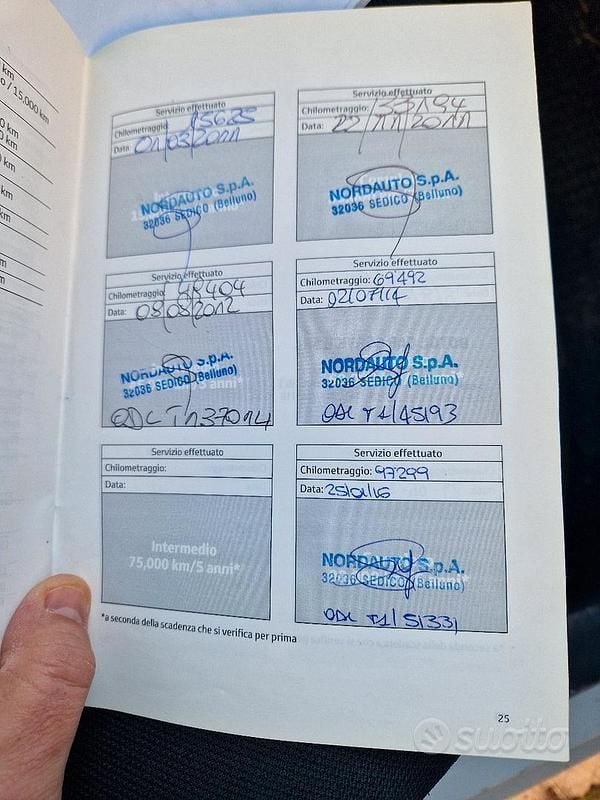 km
o / 15.000
km
km
km
km
Servizio effettuato
Chilometraggio: 15625
Data: 01/03/2011
NORDAUTO S.p.A.
32036 SEDICO (Belluno)
Servizio effettuato
Chilometraggio: 33194
Data: 22/11/2011
NORDAUTO S.p.A.
32036 SEDICO (Belluno)
Servizio effettuato
Chilometraggio: 48404
Data: 08/08/2012
NORDAUTO S.p.A.
32036 SEDICO (Belluno)
5 anni*
ODL T137014
Servizio effettuato
Chilometraggio: 69492
Data: 02/07/14
NORDAUTO S.p.A.
32036 SEDICO (Belluno)
ODL T1/45193
Servizio effettuato
Chilometraggio:
Data:
Intermedio
75,000 km/5 anni*
Servizio effettuato
Chilometraggio: 97299
Data: 25/01/16
NORDAUTO S.p.A.
32036 SEDICO (Belluno)
ODL T1/51331
*a seconda della scadenza che si verifica per prima
25
subito